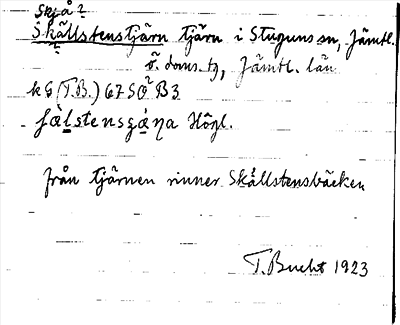 Skjå?
Skållstenstjärn tjärn i Stuguns sn, Jämtl.
ö. doms. tg, Jämtl. län
k G (T.B.) 67 SÖ B3
Högl.
från tjärnen rinner Skållstensbäcken
T. Bucht 1923